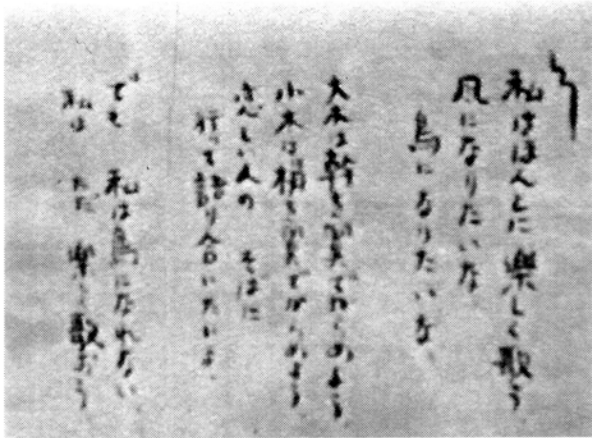 私はほんとに 楽しく歌う
風になりたいな
鳥になりたいな
大木は幹を
小木は梢を
恋しい人の そばに
行って語り合いたいよ
でも 私は鳥になれない
私は ただ 楽しく歌おう